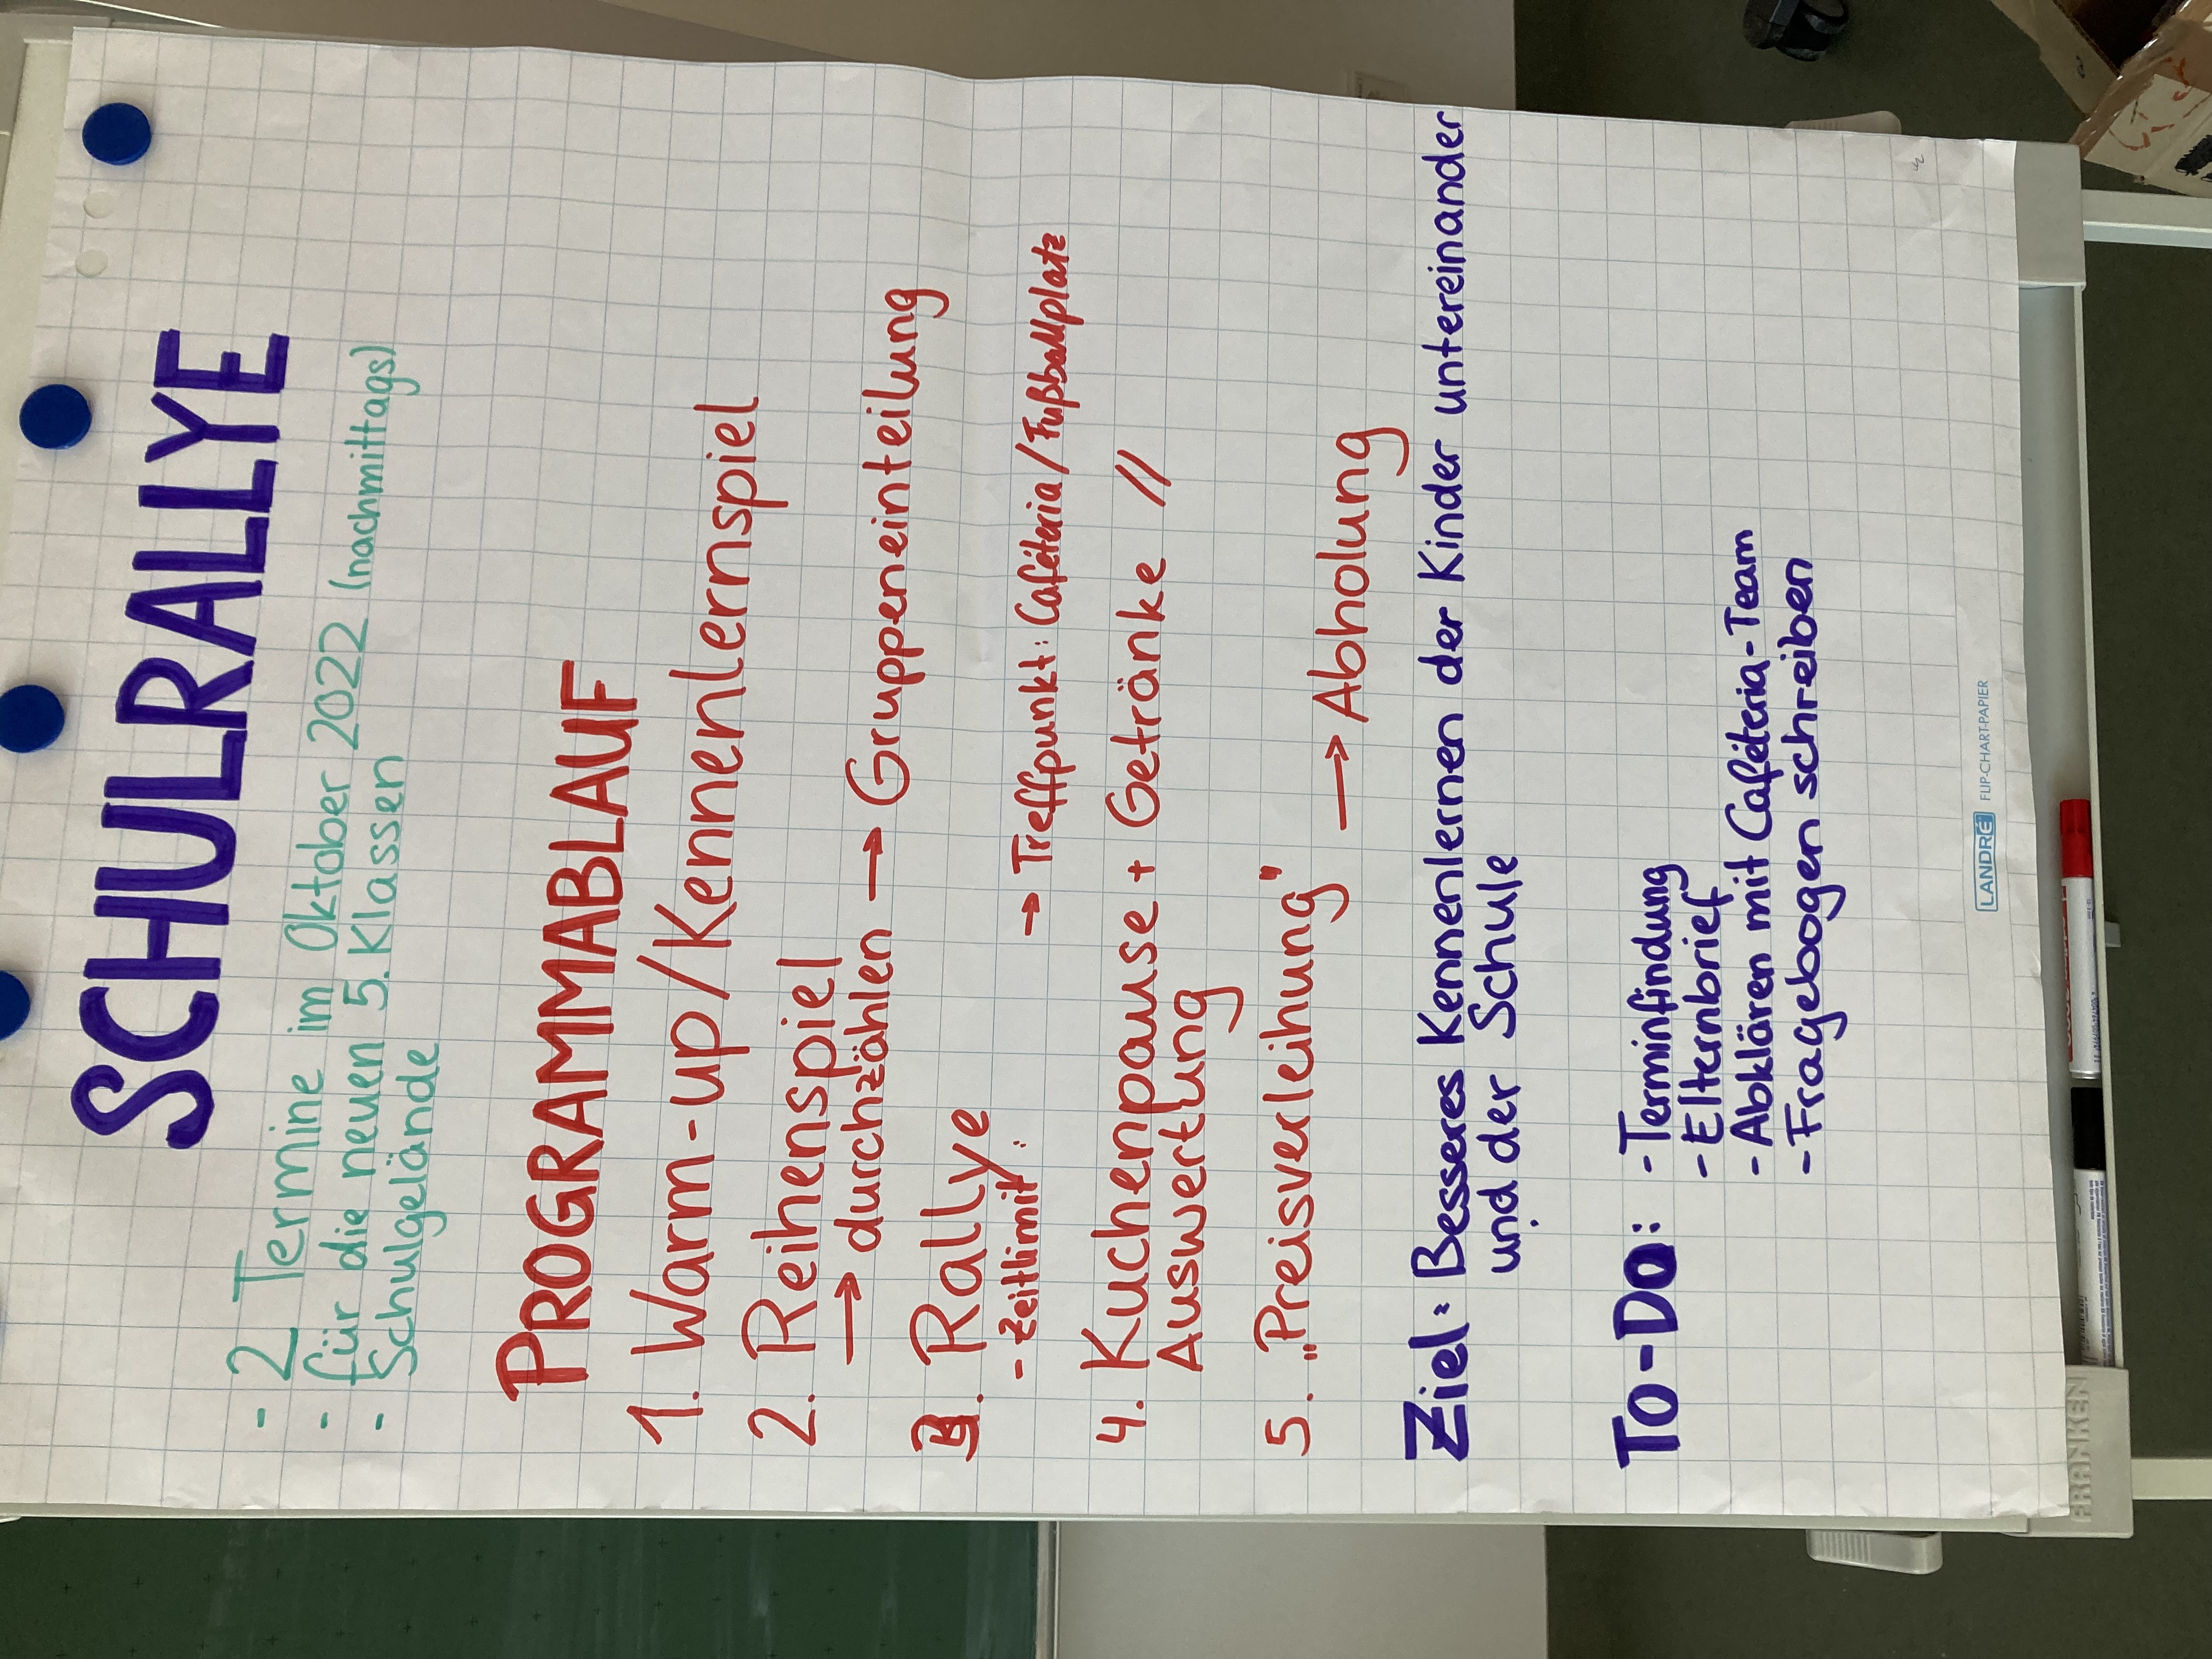 SCHULRALLYE
- 2 Termine im Oktober 2022 (nachmittags)
- für die neuen 5. Klassen
- Schulgelände
PROGRAMMABLAUF
1. Warm-up/Kennenlernspiel
2. Reihenspiel
→ durchzählen → Gruppeneinteilung
3. Rallye
- Zeitlimit!:
→ Treffpunkt: Caféteria/Fußballplatz
4. Kuchenpause + Getränke //
Auswertung
5. „Preisverleihung"
→ Abholung
Ziel: Besseres Kennenlernen der Kinder untereinander
und der Schule
To-Do: - Terminfindung
- Elternbrief
- Abklären mit Caféteria-Team
- Fragebogen schreiben
LANDRÉ FLIP-CHART-PAPIER
FRANKEN